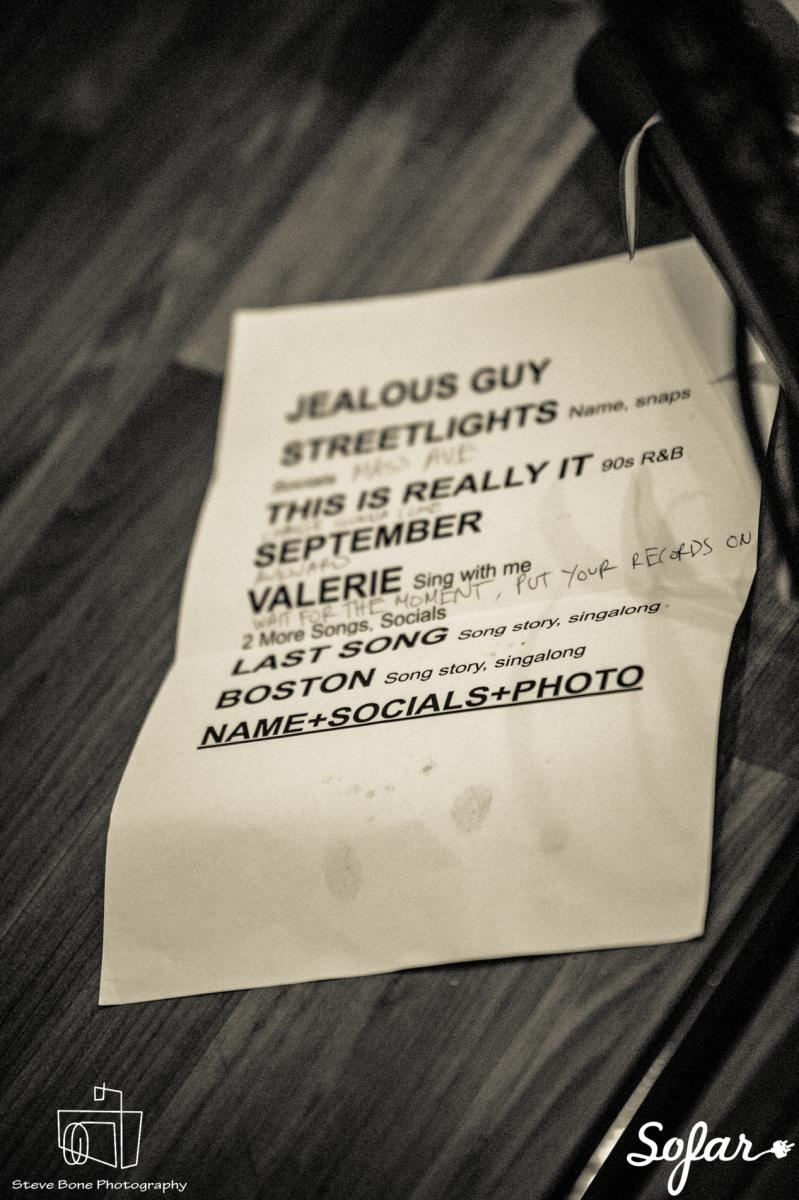 JEALOUS GUY
STREETLIGHTS Name, snaps
Socials MASS AVE
THIS IS REALLY IT 90s R&B
SEPTEMBER
AWKWARD
VALERIE Sing with me
WAIT FOR THE MOMENT, PUT YOUR RECORDS ON
2 More Songs, Socials
LAST SONG Song story, singalong
BOSTON Song story, singalong
NAME+SOCIALS+PHOTO
Steve Bone Photography
Sofar